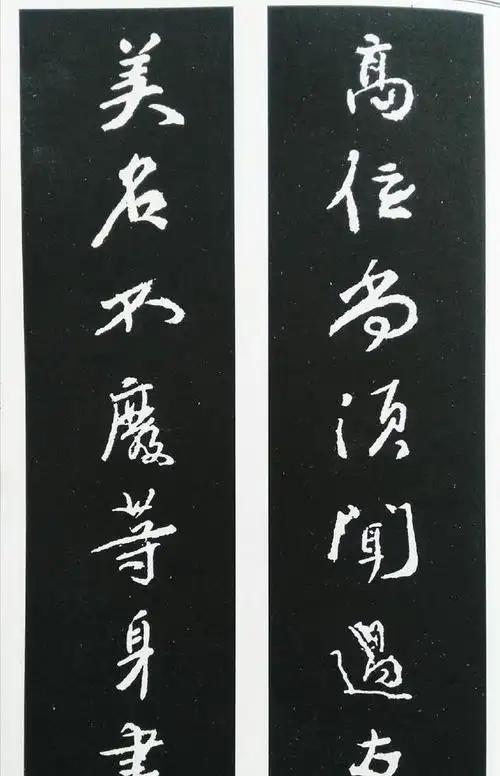 高位尚須聞過友
美名不廢等身書